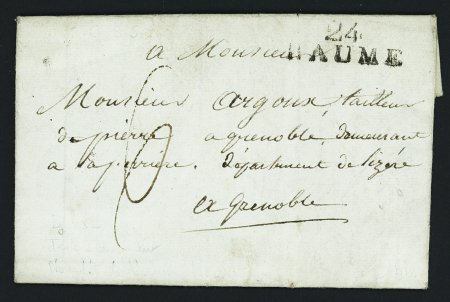 24
BAUME
a Monsieur
Monsieur argoux, tailleur
de pierre a grenoble, demeurant
a laperriere. département de lizére
a Grenoble
6